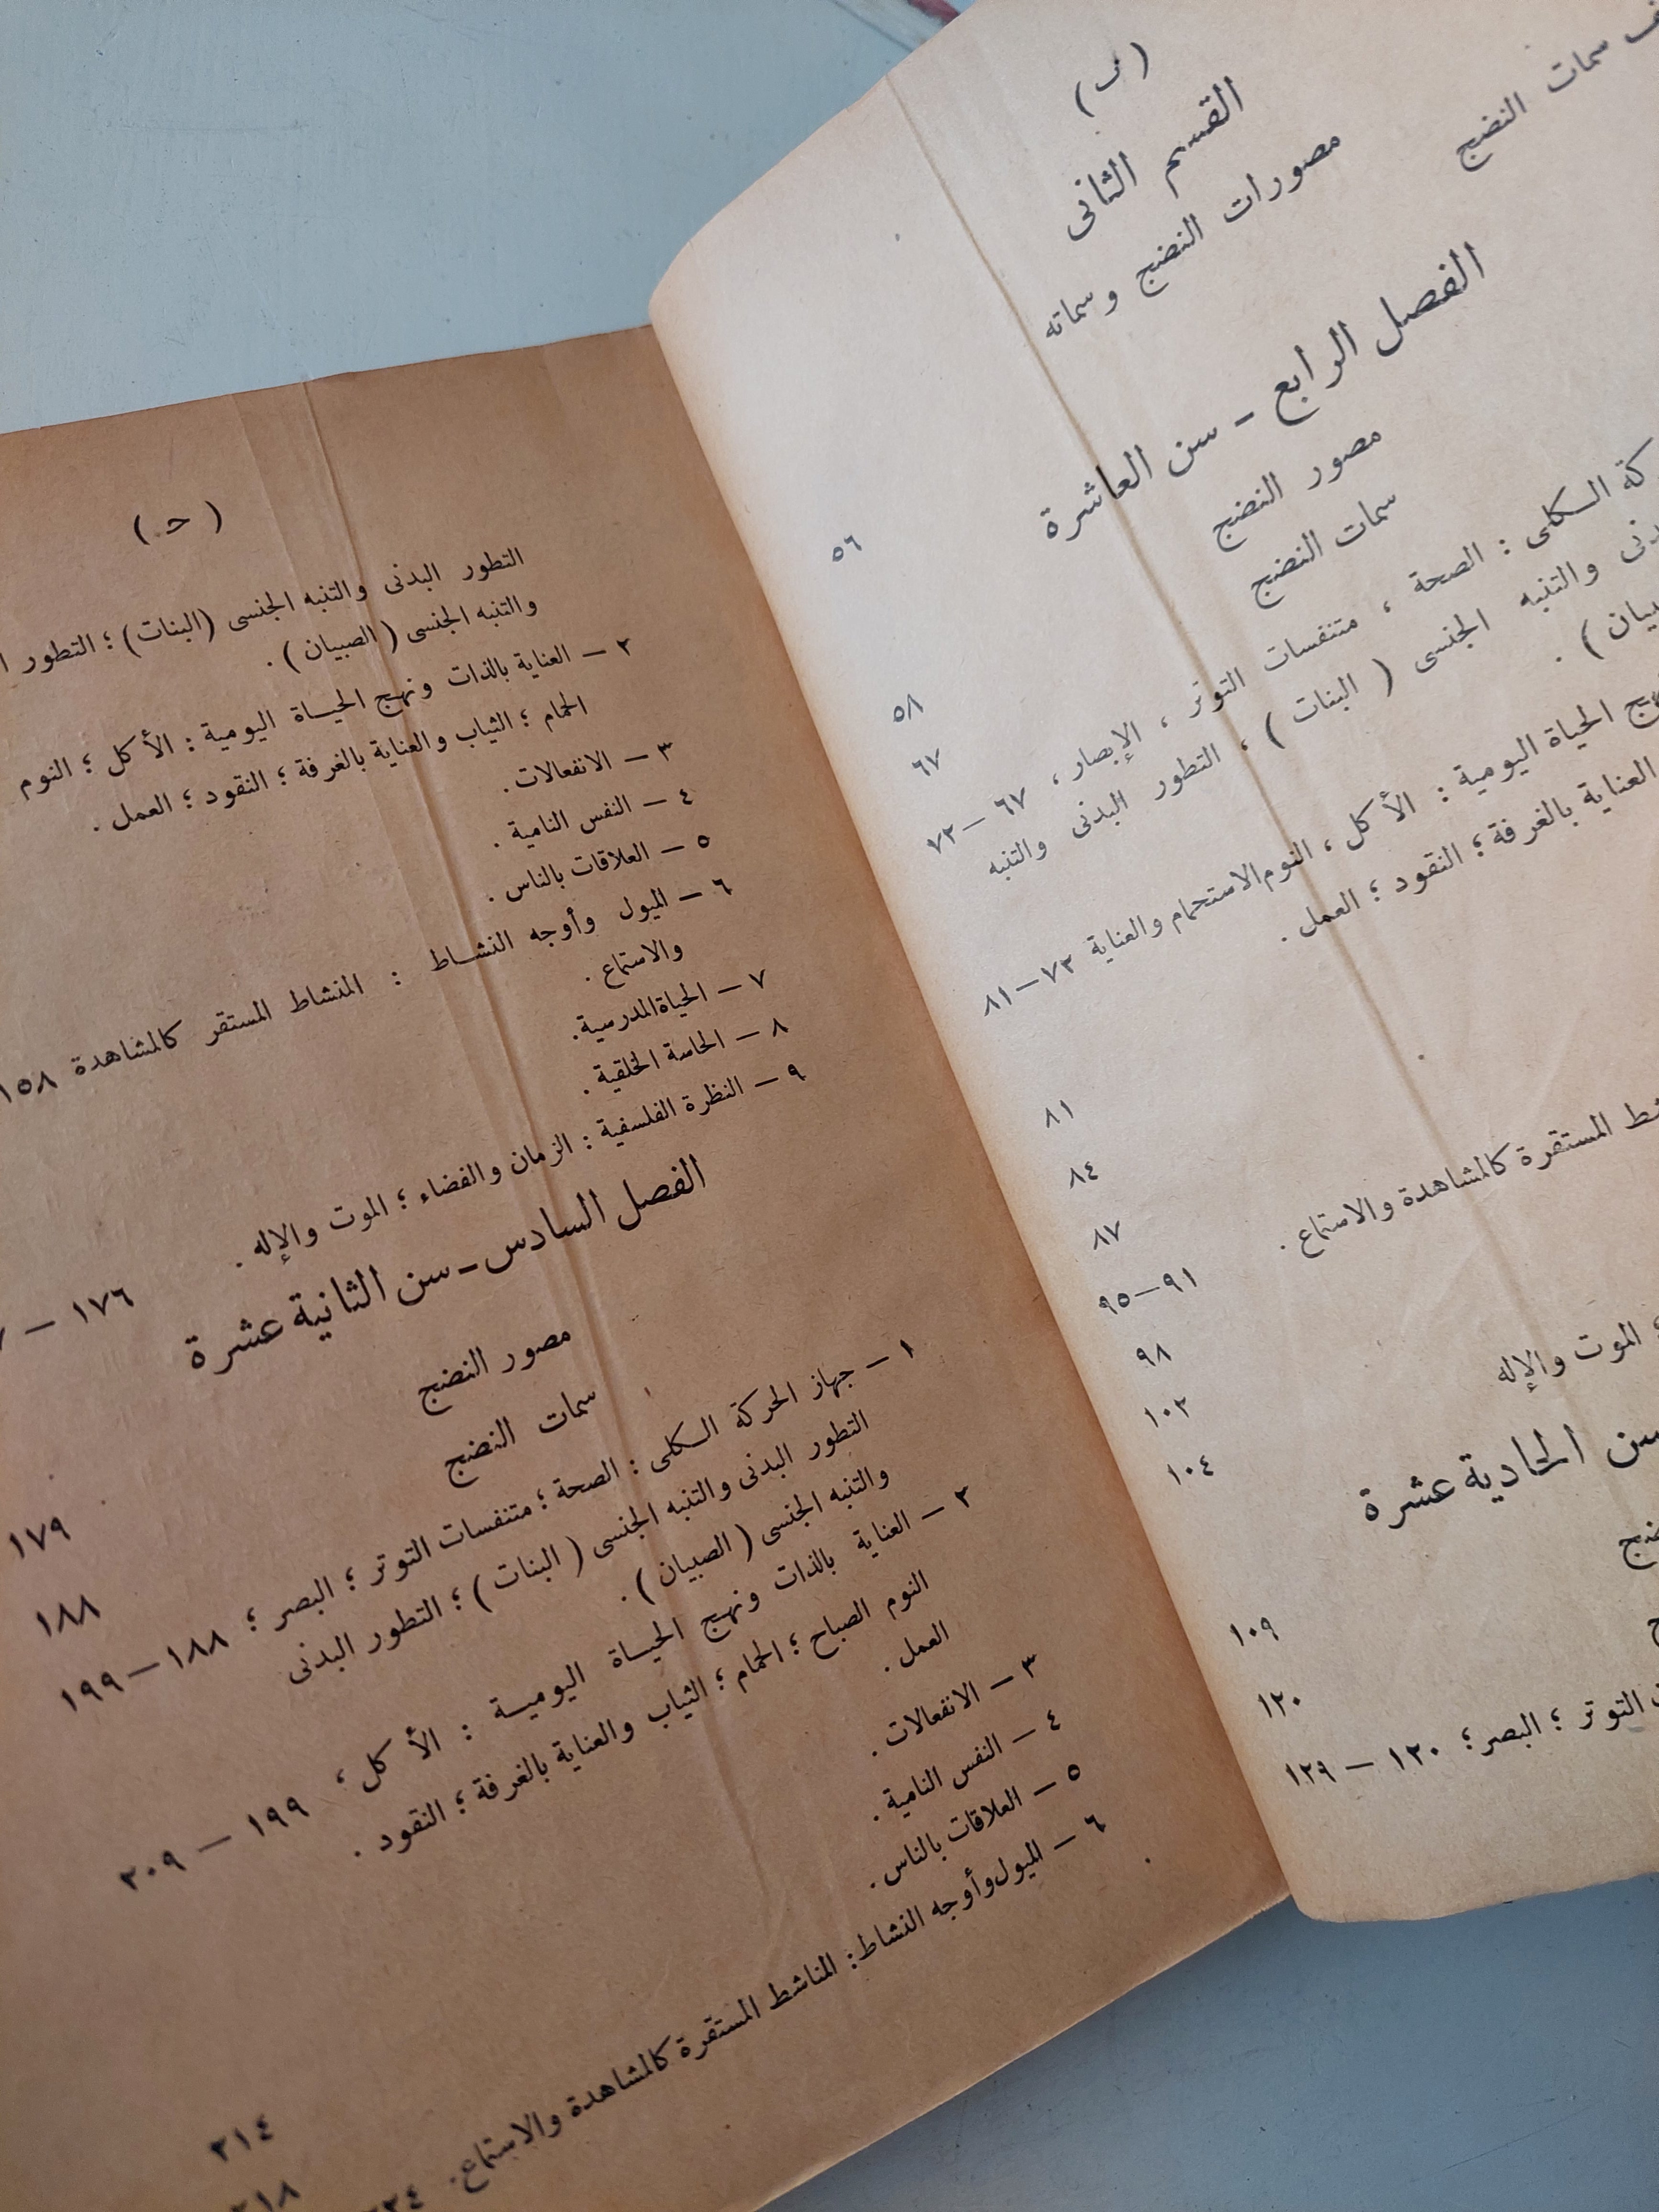 (ب)
سمات النضج
القسم الثانى
مصورات النضج وسماته
الفصل الرابع - سن العاشرة ٥٦
مصور النضج ٥٨
سمات النضج ٦٧
السكلى : الصحة ، متنفسات التوتر ، الإبصار ، ٦٧ - ٧٢
والتنبه الجنسى ( البنات ) ، التطور البدنى والتنبه
الحياة اليومية : الأكل ، النوم الاستحمام والعناية ٧٣ - ٨١
العناية بالغرفة ؛ النقود ؛ العمل .
٨١
٨٤
٨٧
المستقرة كالمشاهدة والاستماع . ٩١ - ٩٥
٩٨
١٠٢
الموت والإله ١٠٤
سن الحادية عشرة
١٠٩
١٢٠
التوتر ؛ البصر ؛ ١٢٠ - ١٢٩
(ح)
التطور البدنى والتنبه الجنسى (البنات) ؛ التطور
والتنبه الجنسى ( الصبيان ) .
٢ - العناية بالذات ونهج الحياة اليومية : الأكل ؛ النوم
الحمام ؛ الثياب والعناية بالغرفة ؛ النقود ؛ العمل .
٣ - الانفعالات .
٤ - النفس النامية .
٥ - العلاقات بالناس .
٦ - الميول وأوجه النشاط : المنشاط المستقر كالمشاهدة ١٥٨
والاستماع .
٧ - الحياة المدرسية .
٨ - الحاسة الخلقية .
٩ - النظرة الفلسفية : الزمان والفضاء ؛ الموت والإله . ١٧٦ -
الفصل السادس - سن الثانية عشرة
مصور النضج ١٧٩
سمات النضج ١٨٨
١ - جهاز الحركة السكلى : الصحة ؛ متنفسات التوتر ؛ البصر ؛ ١٨٨ - ١٩٩
التطور البدنى والتنبه الجنسى ( البنات ) ؛ التطور البدنى
والتنبه الجنسى ( الصبيان ) .
٢ - العناية بالذات ونهج الحياة اليومية : الأكل ، ١٩٩ - ٢٠٩
النوم الصباح ؛ الحمام ؛ الثياب والعناية بالغرفة ؛ النقود .
العمل .
٣ - الانفعالات .
٤ - النفس النامية . ٢١٤
٥ - العلاقات بالناس . ٢١٨
٦ - الميول وأوجه النشاط : المناشط المستقرة كالمشاهدة والاستماع .